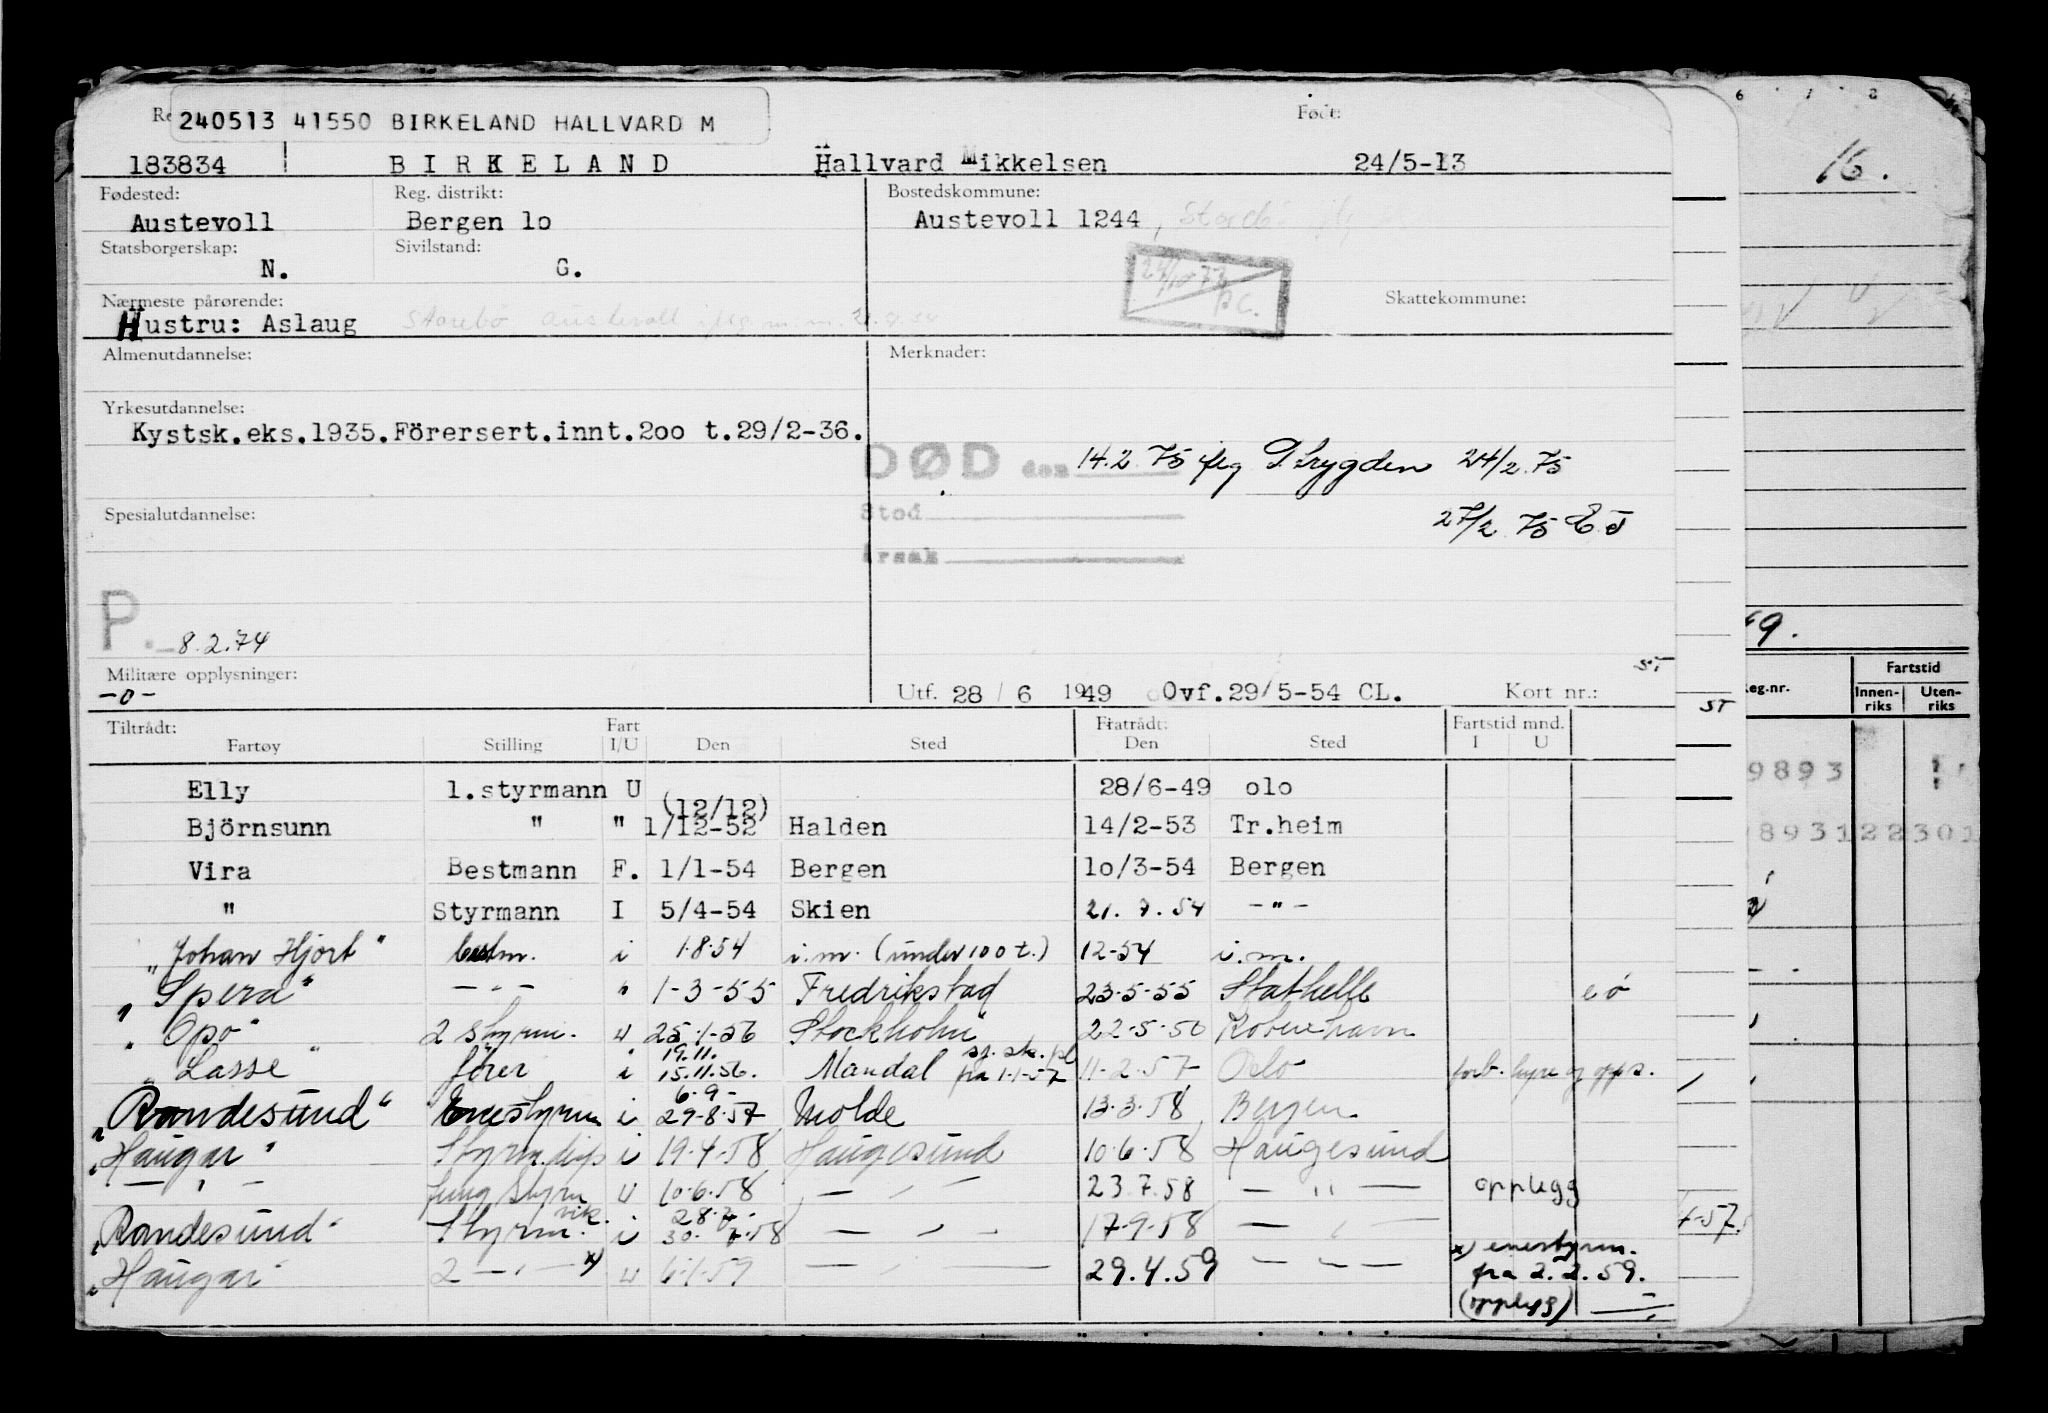 240513 41550 BIRKELAND HALLVARD M
Født:
183834 BIRKELAND Hallvard Mikkelsen 24/5-13
Fødested: Reg. distrikt: Bostedskommune:
Austevoll Bergen 1o Austevoll 1244,
Statsborgerskap: Sivilstand:
N. G.
Nærmeste pårørende: Skattekommune:
Hustru: Aslaug Storebø Austevoll
Almenutdannelse: Merknader:
Yrkesutdannelse:
Kystsk.eks.1935.Förersert.innt.2oo t.29/2-36.
DØD den 14.2.75 flg 24/2.75
Spesialutdannelse: Sted 27/2.75 E.J
Årsak
P. 8.2.74
Militære opplysninger: ST
-o- Utf. 28/6 1949 Ovf.29/5-54 CL. Kort nr.:
Tiltrådt: Fart Fratrådt: Fartstid mnd.
Fartøy Stilling I/U Den Sted Den Sted I U
Elly 1.styrmann U 28/6-49 olo
(12/12)
Björnsunn " " 1/12-52 Halden 14/2-53 Tr.heim
Vira Bestmann F. 1/1-54 Bergen 1o/3-54 Bergen
" Styrmann I 5/4-54 Skien 21.7.54 -"-
"Johan Hjort" bestm. i 1.8.54 i.m. (under 100 t.) 12-54 i.m.
"Spera" -"- " 1-3-55 Fredrikstad 23.5-55 Stathelle
"Opo" 2 styrm. u 25.1-56 Stockholm 22-5-56 København
19.11.
"Lasse" fører i 15.11.56. Mandal fra 1-1-57 11-2-57 Oslo forb. hyre og opps.
6-9-
"Randesund" Enestyrm i 29-8-57 Molde 13.3.58 Bergen
"Haugar" Styrm. i 19.4.58 Haugesund 10.6.58 Haugesund
-"- styrm u 10.6.58 -"- 23.7.58 -"- opplegg
vik. 28.7.
"Randesund" Styrm. i 30.7.58 -"- 17.9.58 -"-
"Haugar" 2 -"- x) u 6.1.59 -"- 29.4.59 -"- x) enestyrm.
fra 2.2.59.
(opplegg)
16.
Fartstid
Reg.nr. Innen-riks Uten-riks
ST
9893
893122301